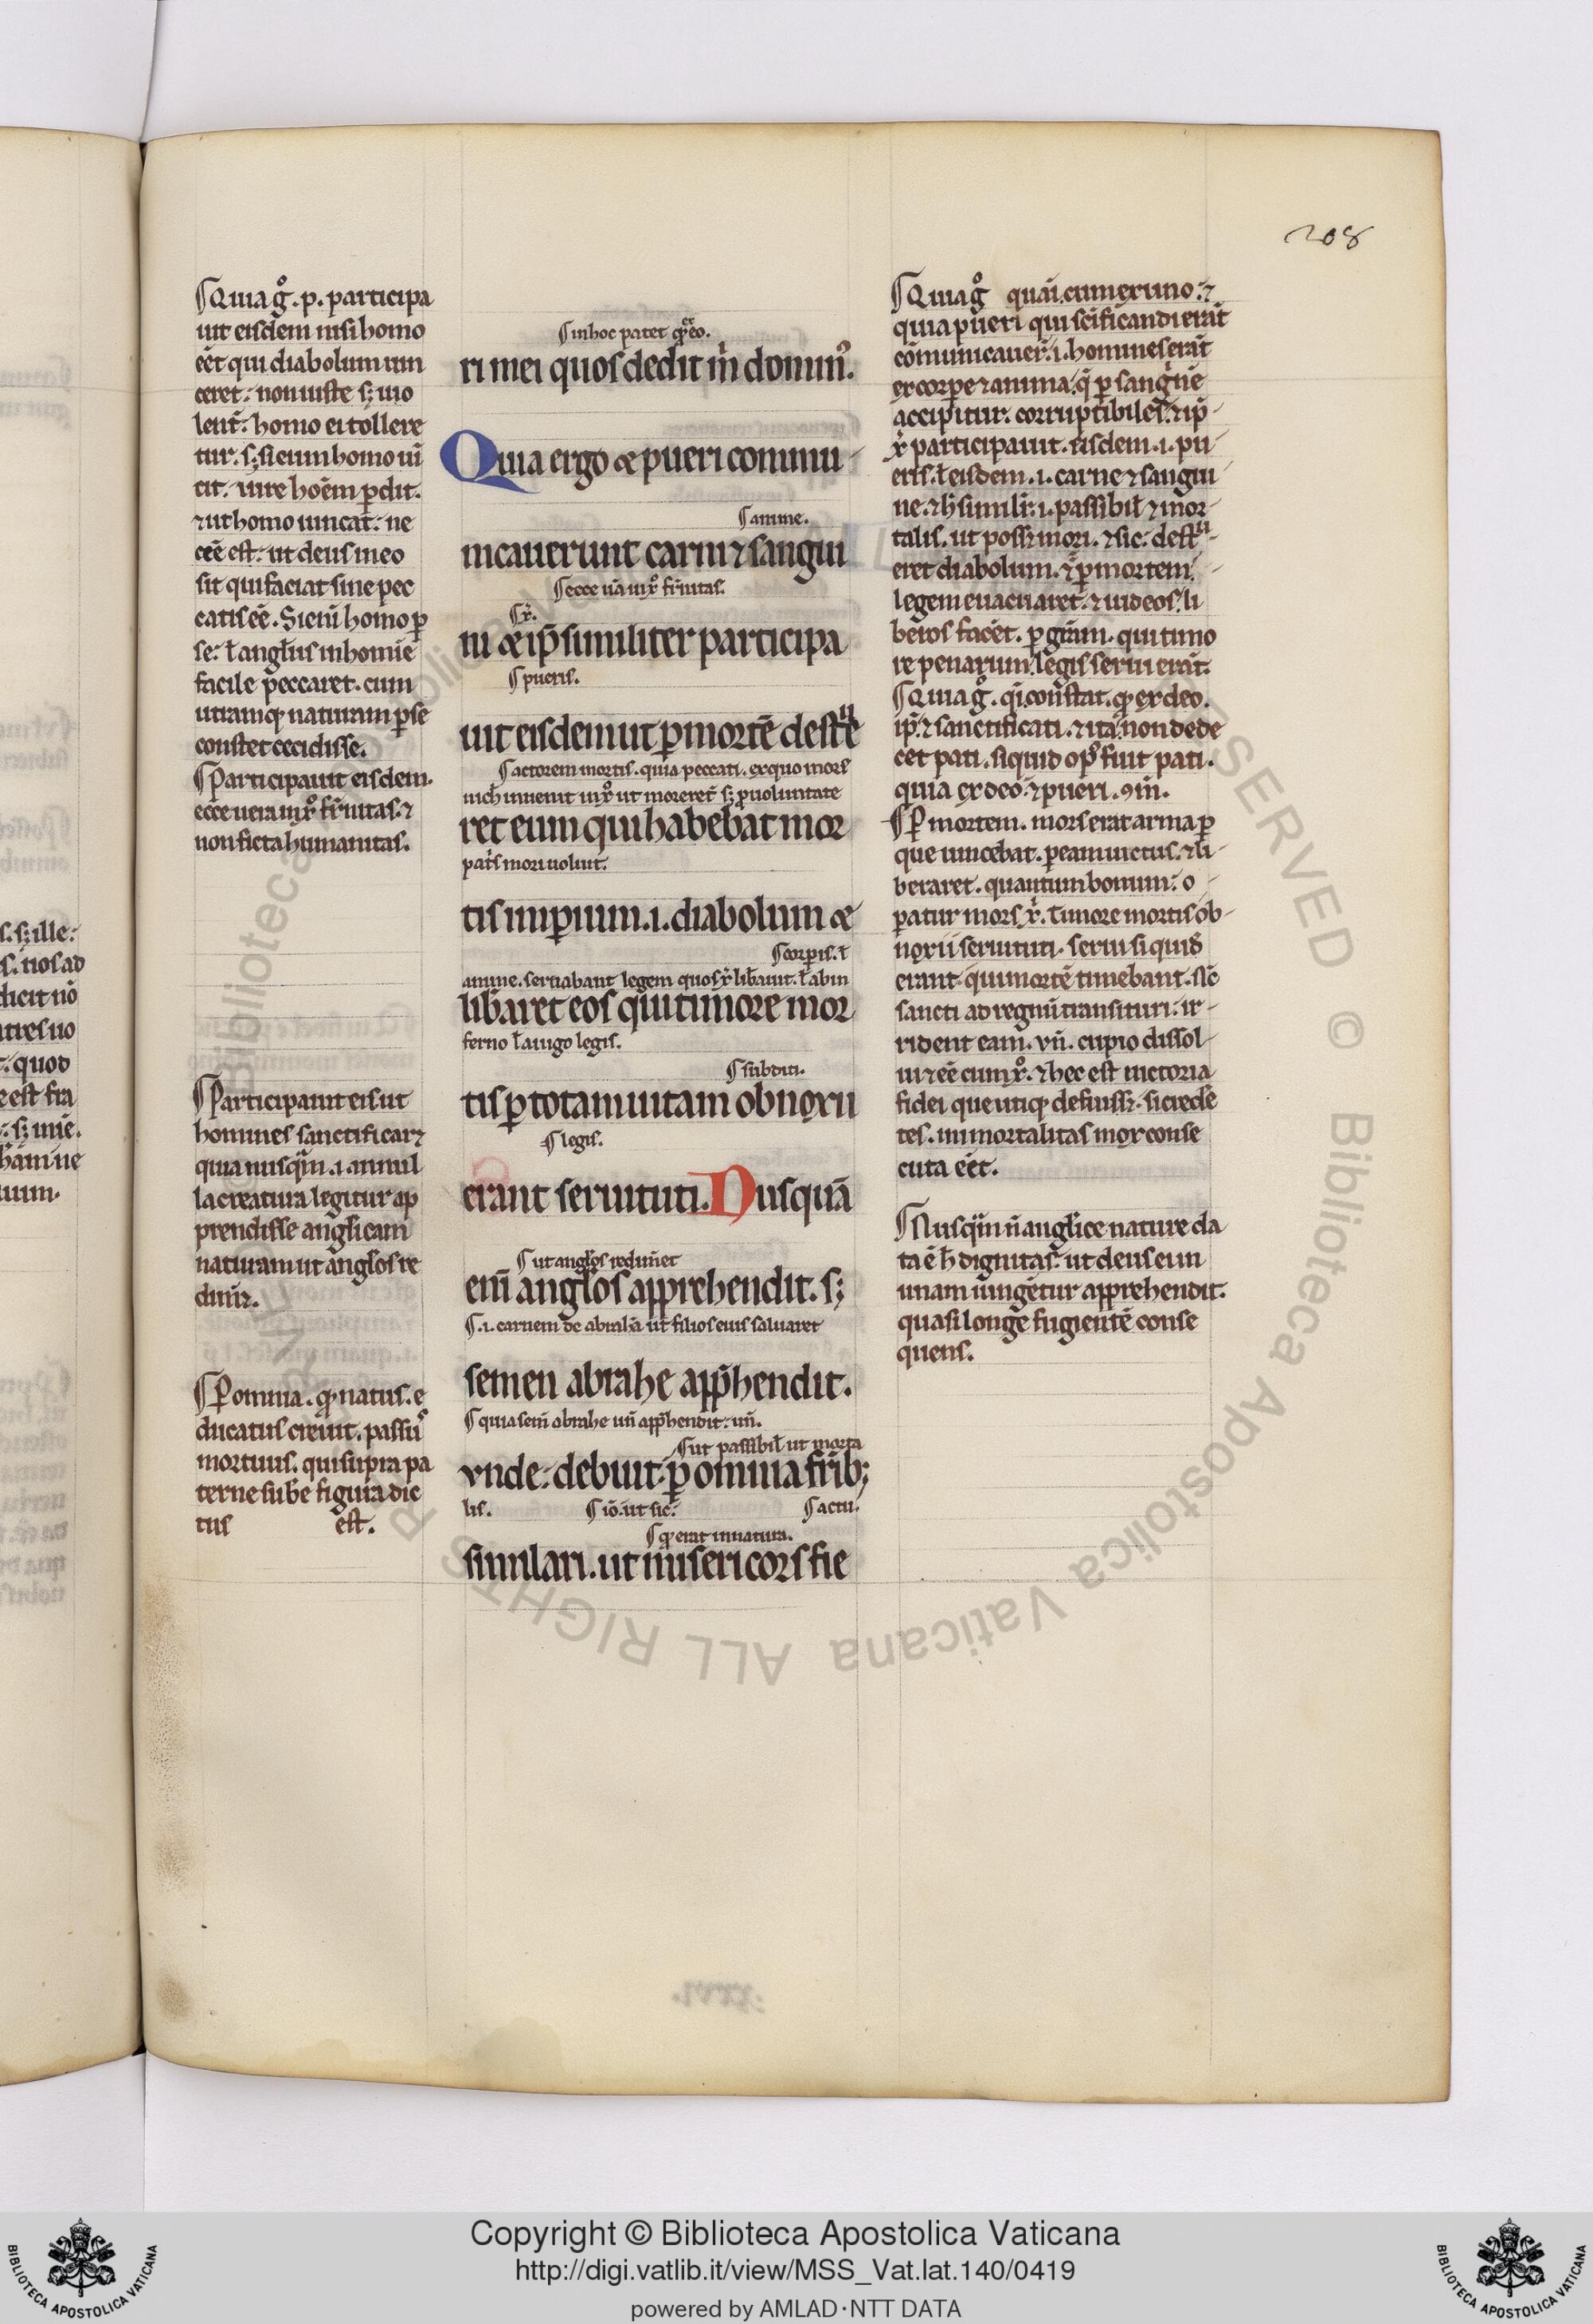 208
¶Quia g̊. p. participa
uit eisdem nisi homo
eēt qui diabolum uin
ceret: non iuste s; uio
lent̄. homo ei tollere
tur. s; si eum homo uī
cit. iure hoēm pdit.
⁊ ut homo uincat: ne
cēē est: ut deus in eo
sit qui faciat sine pec
catis eē. Si enī homo p
se: ł angłus in homīe
facile peccaret. cum
utramq; naturam p se
constet cecidisse.
¶Participauit eisdem.
ecce uera in xp̊o fr̄nitas. ⁊
non ficta humanitas.
¶Participauit eis ut
homines sanctificar⁊
quia nusq̄m .i. in nul
la creatura legitur ap
prendisse anglicam
naturam ut angłos re
dim̄⁊.
¶P omnia. q; natus. e
ducatus creuit. passus
mortuus. qui supra pa
terne sub̄e figura dic
tus est.
¶in hoc patet q; ex eo.
ri mei quos dedit m̄ domin᷒.
Quia ergo & pueri commu-
¶anime.
nicauerunt carni ⁊ sangui
¶ecce uā in xp̊o fr̄nitas.
¶xp̄.
ni & ip̄ similiter participa
¶pueris.
uit eisdem ut p mortē destrue
¶actorem mortis. quia peccati. ex quo mors
nich̄ inuenit in xp̊o ut moreret̄ s; p uoluntate
ret eum qui habebat mor
pat̄s mori uoluit.
tis impium. i. diabolum &
¶corpis. ł
anime. seruabant legem quos xp̄ libauit. ł ab in
lib̄aret eos qui timore mor
ferno ł a iugo legis.
¶subditi.
tis p totam uitam obnoxii
¶legis.
erant seruituti. Nusquā
¶ut angłos redim̄et
enī angłos apprehendit. s;
¶.i. carnem de abrahā ut filios eius saluaret
semen abrahe app̄hendit.
¶quia sem̄ abrahe uñ app̄hendit: uñ.
¶ut passibił ut morta
vnde: debuit p omnia fr̄ib;
lis. ¶iō. ut sic: ¶actu.
¶q; erat in natura.
similari. ut misericors fie
¶Quia g̊ quāi. cum ex uno: ⁊
quia pueri qui sc̄ificandi erāt
cōmunicauer̄. i. homines erāt
ex corpe ⁊ anima. q̄ p sang̊nē
accipitur. corruptibiles. ⁊ ip̄-
xp̄ participauit. eisdem. i. pu-
eris. ł eisdem. i. carne ⁊ sangui-
ne. ⁊ h̄ simił: i. passibił ⁊ mor-
talis. ut poss⁊ mori. ⁊ sic: destru-
eret diabolum. ⁊ p mortem-
legem euacuaret. ⁊ iudeos li
beros facēt. p grām. qui timo
re penarum legis serui erāt.
¶Quia g̊. q̄i. constat. q; ex deo.
ip̄ ⁊ sanctificati. ⁊ ita non dede
cet pati. si quid op᷒ fuit pati.
quia ex deo ⁊ pueri. 9m̄.
¶P mortem. mors erat arma p
que uincebat. p eam uictus. ⁊ li-
beraret. quantum bonum: o-
patur mors xp̄. timore mortis ob-
noxii seruituti. serui si quid̄
erant qui mortē timebant. nc̄
sancti ad regnū transituri: ir-
rident eam. vñ. cupio dissol-
ui ⁊ eē cum xp̊. ⁊ hec est uictoria
fidei que utiq; defuiss⁊. si crede
tes. immortalitas mox conse
cuta eēt.
¶Nusq̄m ñ anglice nature da
ta ē h̄ dignitas: ut deus eun
unam iungētur apprehendit.
quasi longe fugientē conse
quens.
Copyright © Biblioteca Apostolica Vaticana
http://digi.vatlib.it/view/MSS_Vat.lat.140/0419
powered by AMLAD·NTT DATA